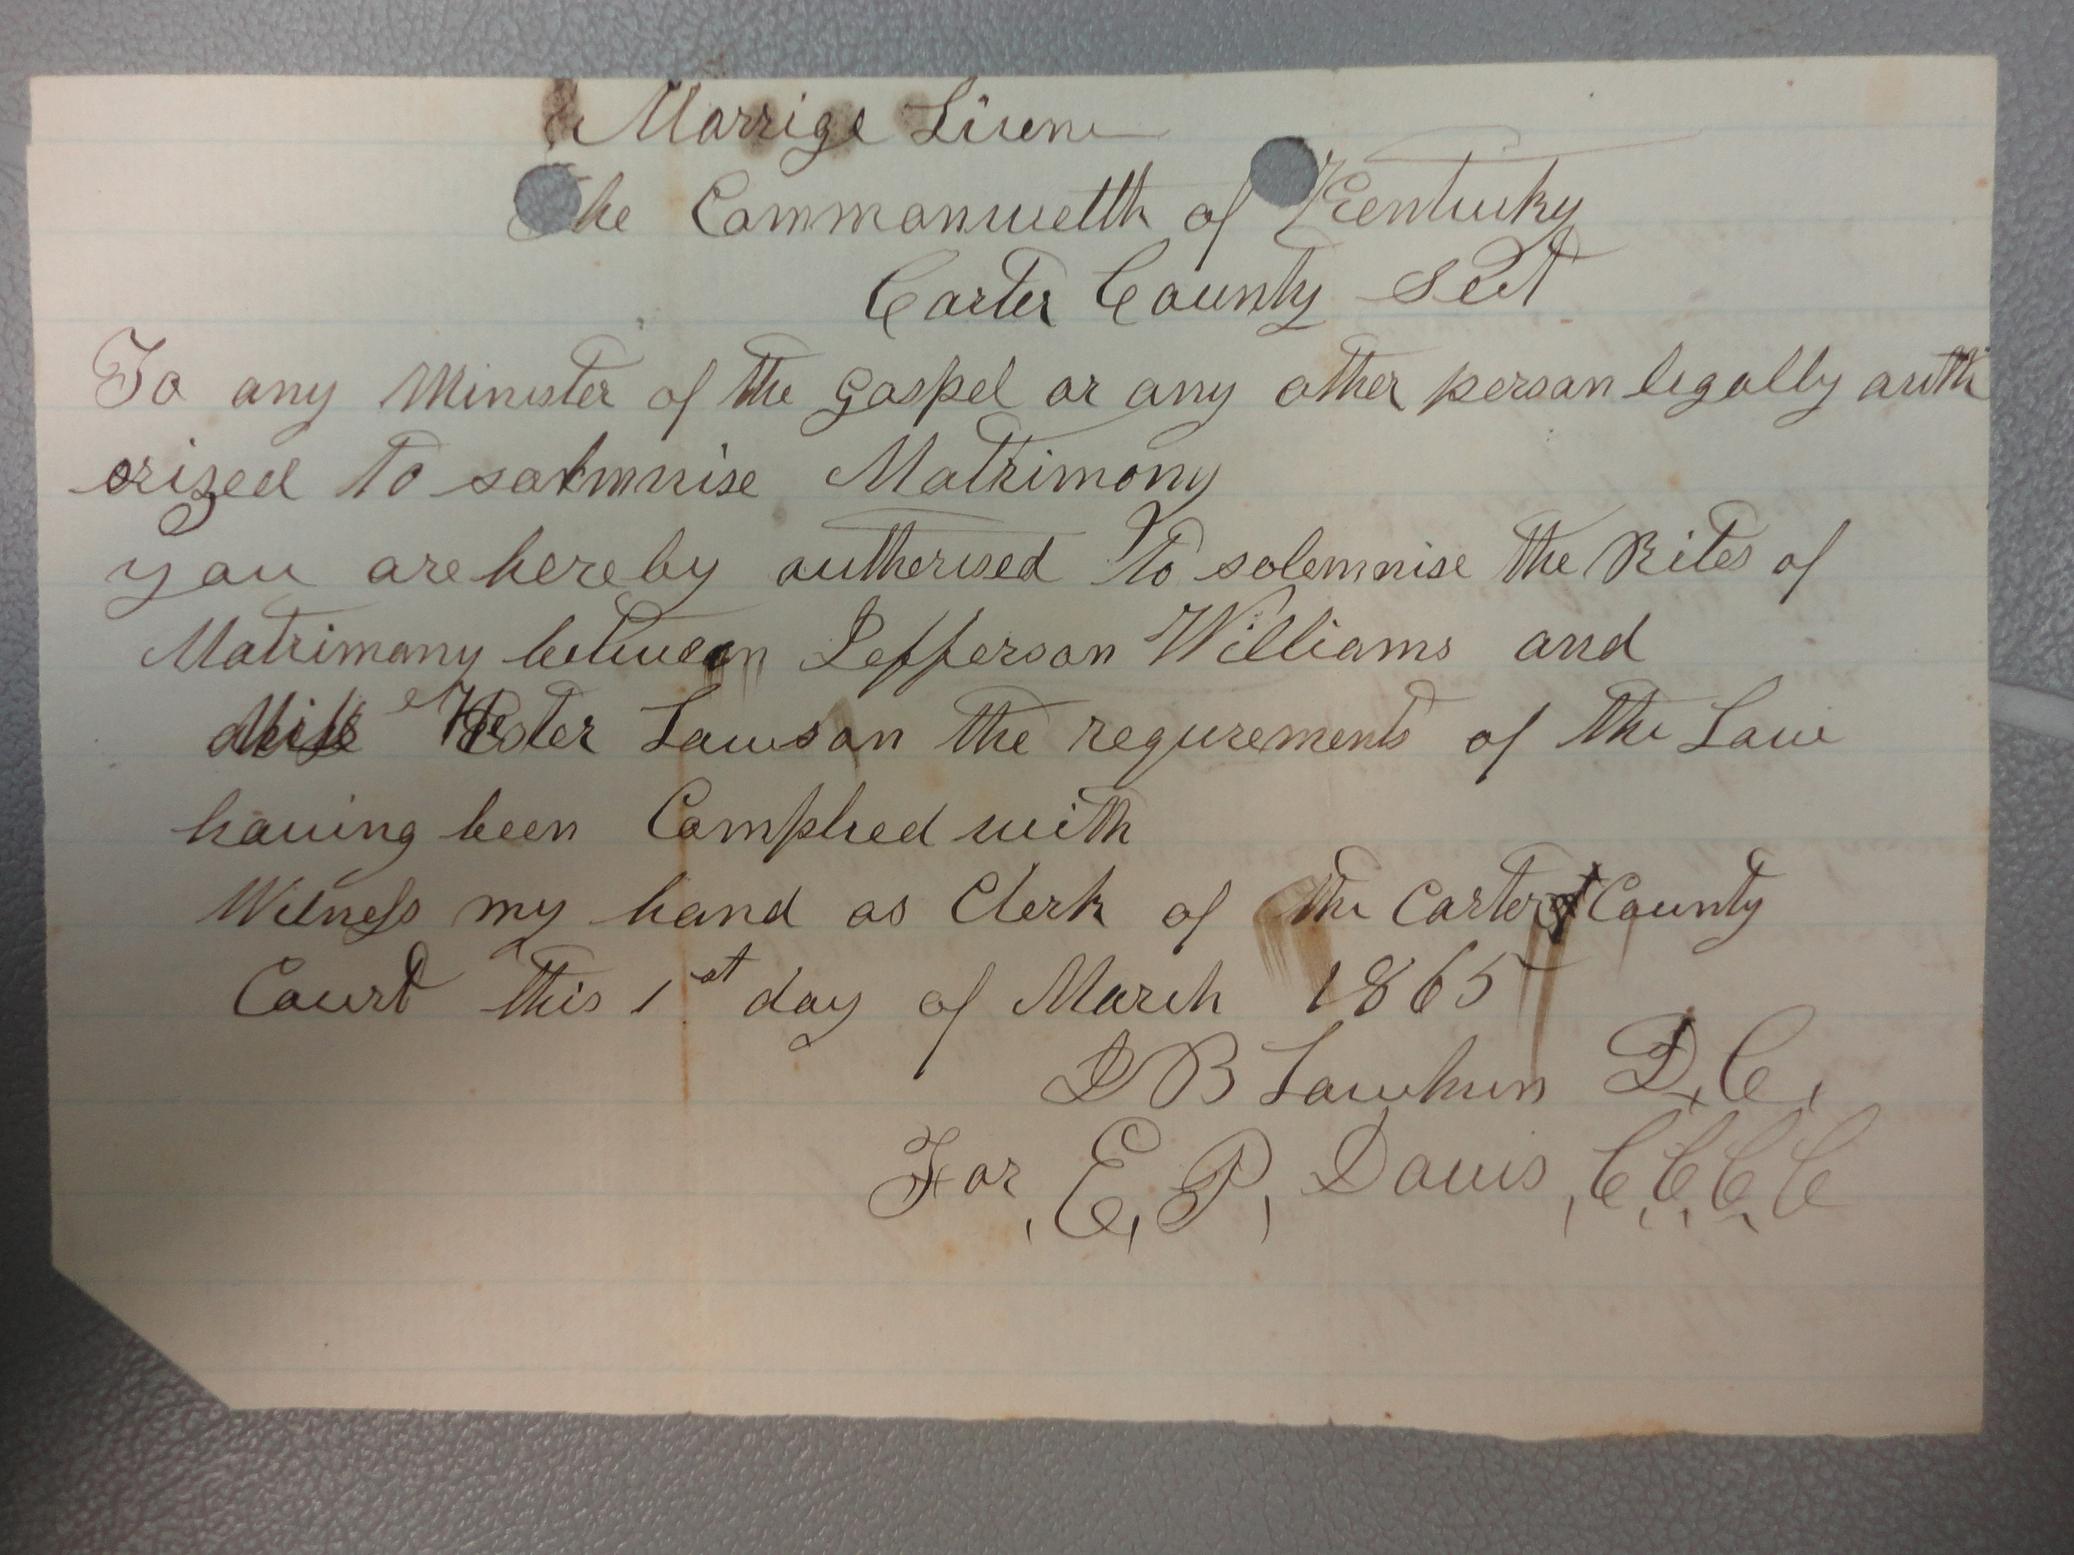 Marrige Licens
The Commonwelth of Kentucky
Carter County Sct
To any Minister of the Gospel or any other person legally auth
orized to solemnise Matrimony
you are hereby autherised to solemnise the Rites of
Matrimony between Jefferson Williams and
Miss Hester Lawson the requrements of the Law
having been Complied with
Witness my hand as Clerk of the Carter County
Court this 1st day of March 1865
J B D.C.
For, E, P, Davis, C.C.C.C